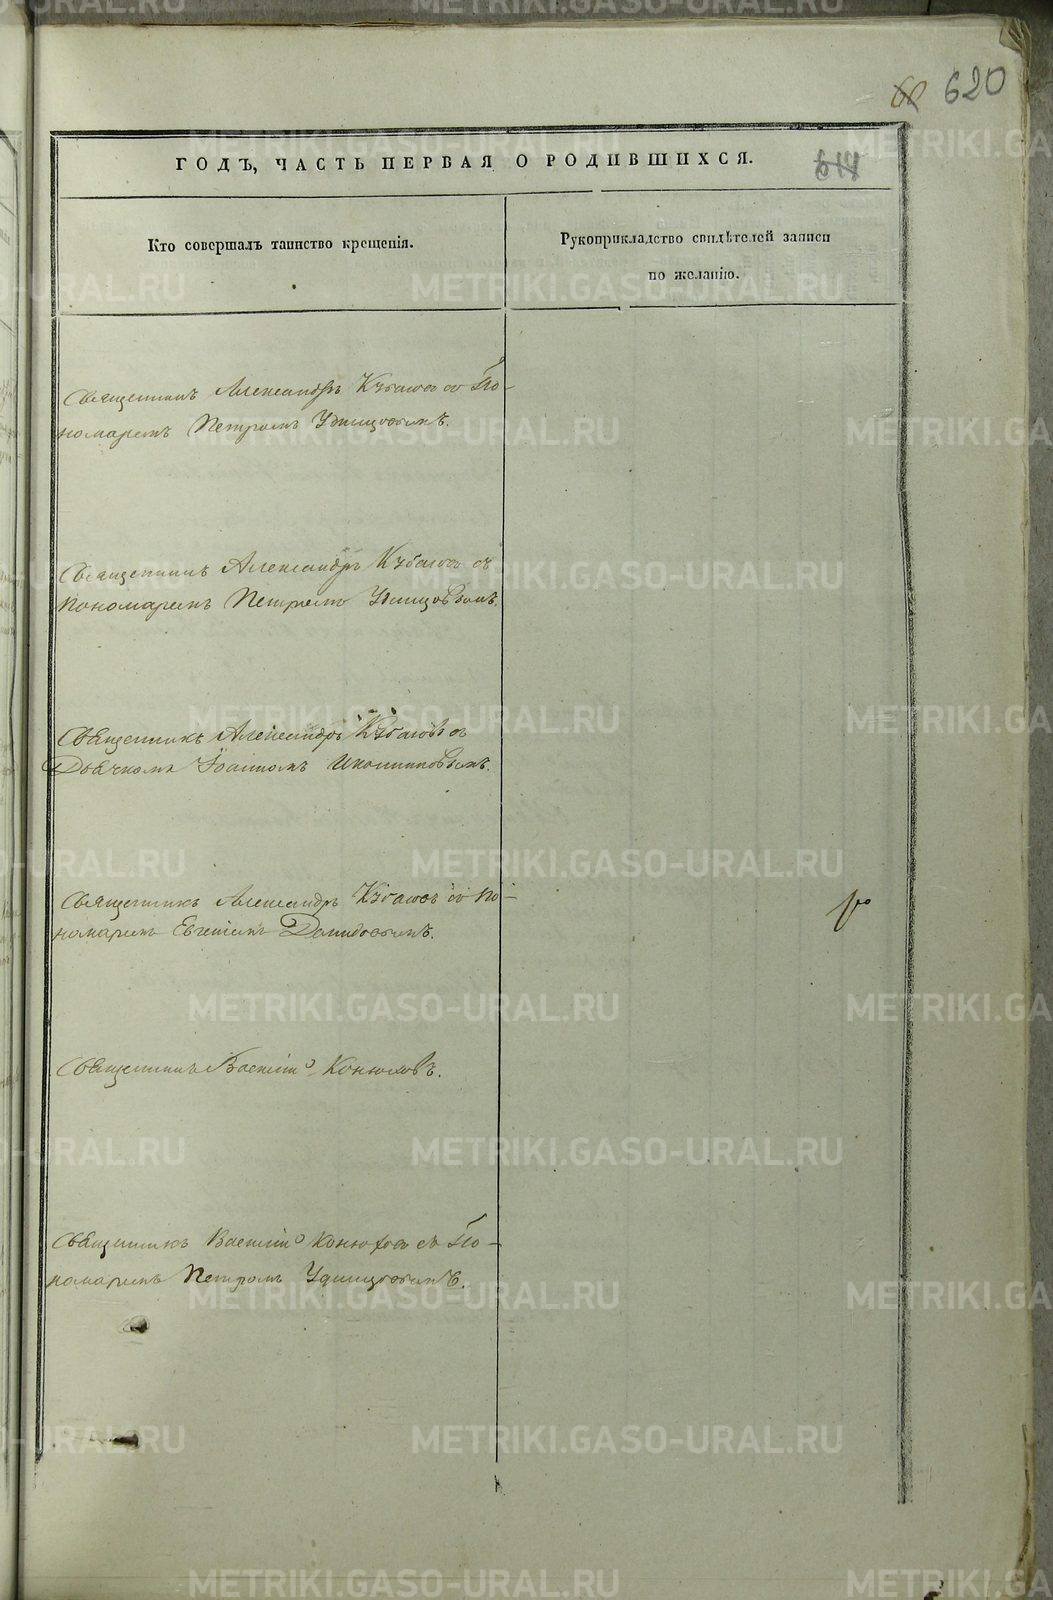 620
617
ГОДЪ, ЧАСТЬ ПЕРВАЯ О РОДИВШИХСЯ.
Кто совершалъ таинство крещенія.
Рукоприкладство свидѣтелей записи
по желанію.
Священникъ Александръ Кузовъ съ По-
номаремъ Петромъ Удинцовымъ.
Священникъ Александръ съ
пономаремъ Петромъ Удинцовымъ.
Священникъ Александръ съ
Дьячкомъ Іоанномъ Иконниковымъ.
Священникъ Александръ съ по-
номаремъ Евгеніемъ Давидовымъ.
Священникъ Василій Конюховъ.
Священникъ Василій Конюховъ съ По-
номаремъ Петромъ Удинцовымъ.
METRIKI.GASO-URAL.RU